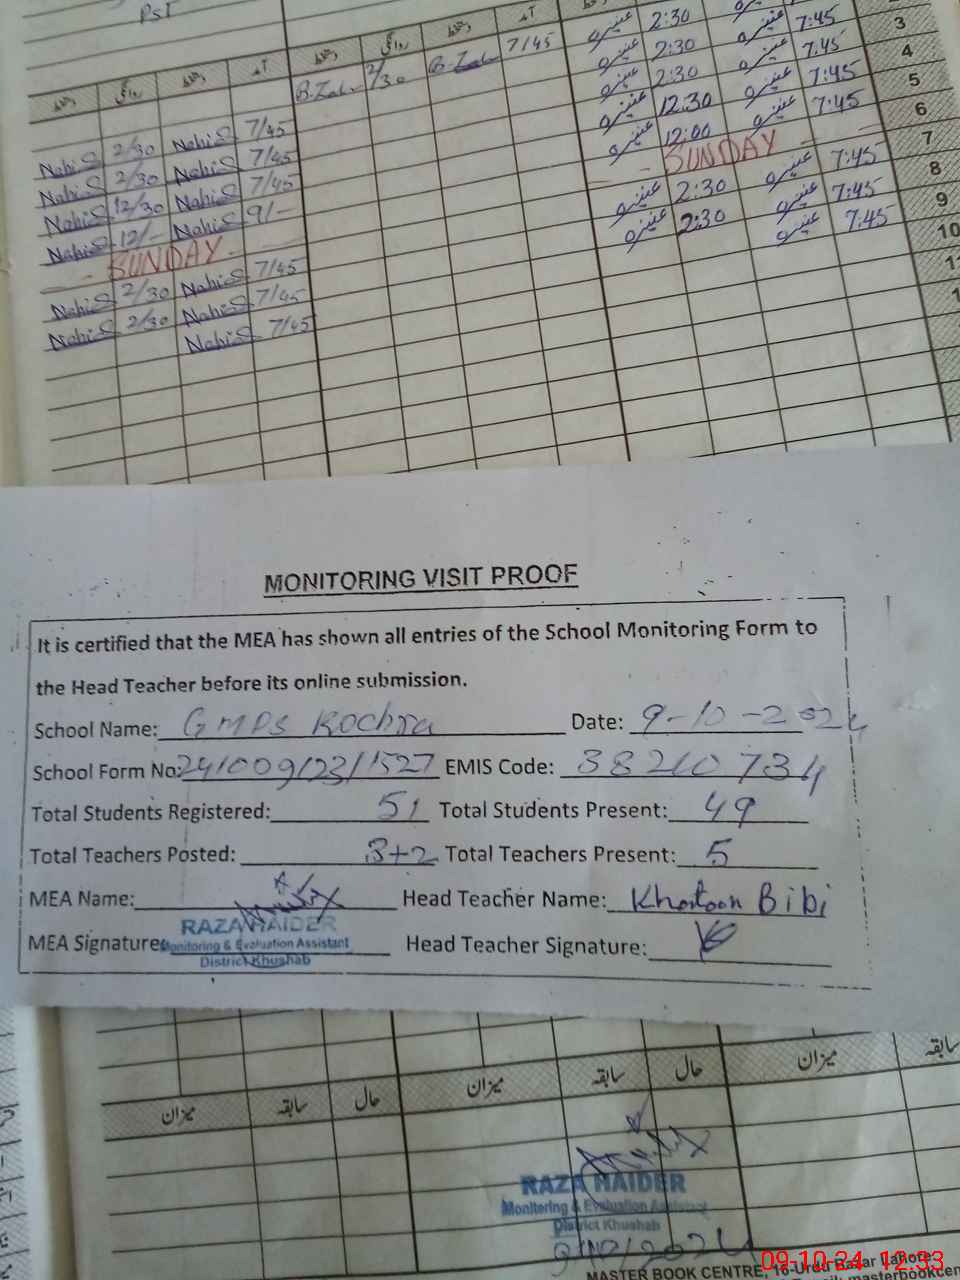 PST
دستخط روانگی دستخط آمد دستخط روانگی دستخط آمد
B.Zah 2/30 B.Zah 7/45
عنیزہ 2:30 7:45 3
عنیزہ 2:30 عنیزہ 7:45 4
عنیزہ 2:30 عنیزہ 7:45 5
عنیزہ 12:30 عنیزہ 7:45 6
عنیزہ 12:00
SUNDAY 7
عنیزہ 2:30 عنیزہ 7:45 8
عنیزہ 2:30 عنیزہ 7:45 9
عنیزہ 7:45 10
NahiS 2/30 NahiS 7/45
NahiS 2/30 NahiS 7/45
NahiS 12/30 NahiS 7/45
NahiS 12/- NahiS 9/-
SUNDAY
NahiS 2/30 NahiS 7/45
NahiS 2/30 NahiS 7/45
NahiS 7/45
MONITORING VISIT PROOF
It is certified that the MEA has shown all entries of the School Monitoring Form to
the Head Teacher before its online submission.
School Name: GMPS Kochra Date: 9-10-2024
School Form No: 241009123/1527 EMIS Code: 38210734
Total Students Registered: 51 Total Students Present: 49
Total Teachers Posted: 3+2 Total Teachers Present: 5
MEA Name: Head Teacher Name: Khatoon Bibi
RAZA HAIDER
MEA Signature: Monitoring & Evaluation Assistant Head Teacher Signature:
District Khushab
میزان سابقہ حال میزان سابقہ حال میزان سابقہ
RAZA HAIDER
Monitoring & Evaluation Assistant
District Khushab
9/10/2024
09-10-24 12:33
MASTER BOOK CENTRE- 16-Urdu Bazar Lahore